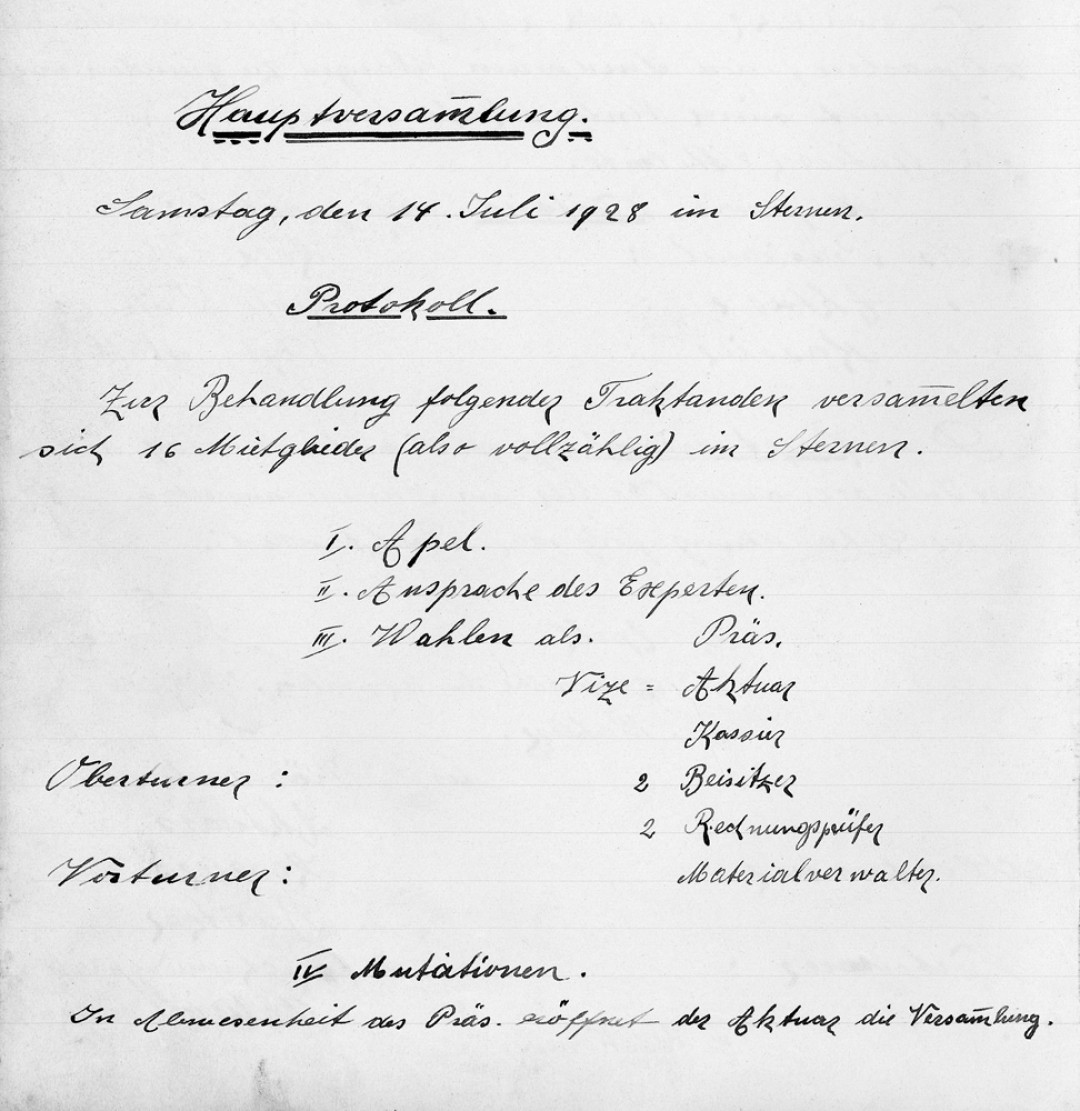 Hauptversam̅lung.
Samstag, den 14. Juli 1928 im Sternen.
Protokoll.
Zur Behandlung folgender Traktanden versam̅elten
sich 16 Mitglieder (also vollzählig) im Sternen.
I. Apel.
II. Ansprache des Experten.
III. Wahlen als. Präs.
Vize = Aktuar
Kassier
Oberturner : 2 Beisitzer
2 Rechnungsprüfer
Vorturner : Materialverwalter.
IV Mutationen.
In Abwesenheit des Präs. eröffnet der Aktuar die Versam̅lung.